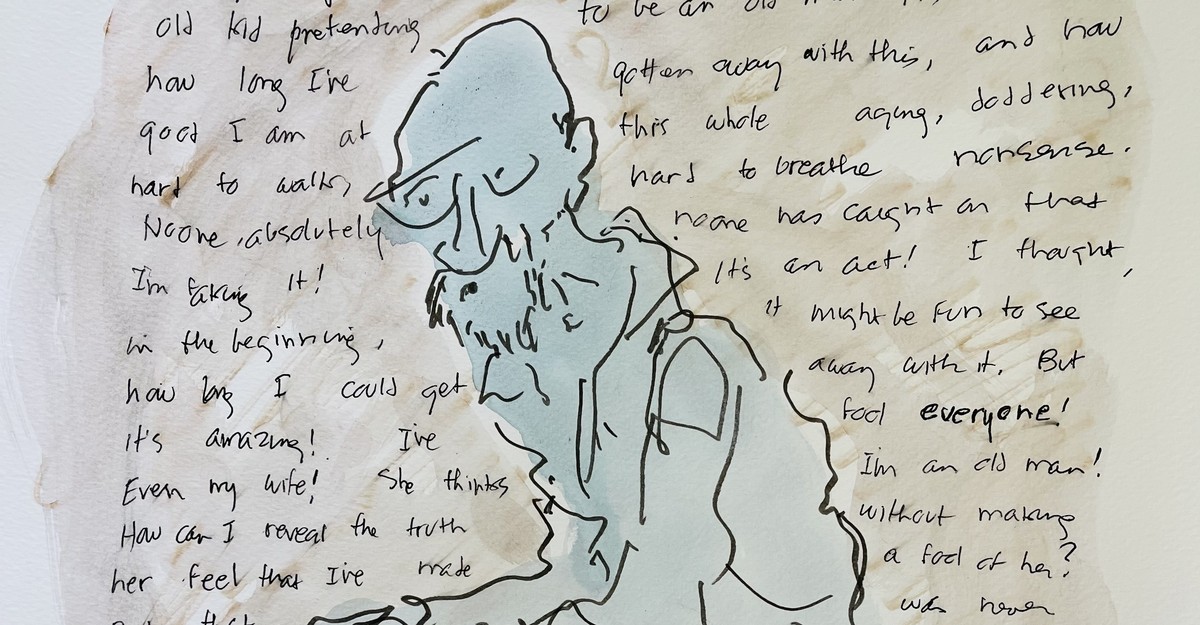 old kid pretending to be an old
how long I've gotten away with this, and how
good I am at this whole aging, doddering,
hard to walk, hard to breathe nonsense.
Noone, absolutely noone has caught on that
I'm faking it! It's an act! I thought,
in the beginning, it might be fun to see
how long I could get away with it. But
it's amazing! I've fool everyone!
Even my wife! She thinks I'm an old man!
How can I reveal the truth without making
her feel that I've made a fool of her?
that was never